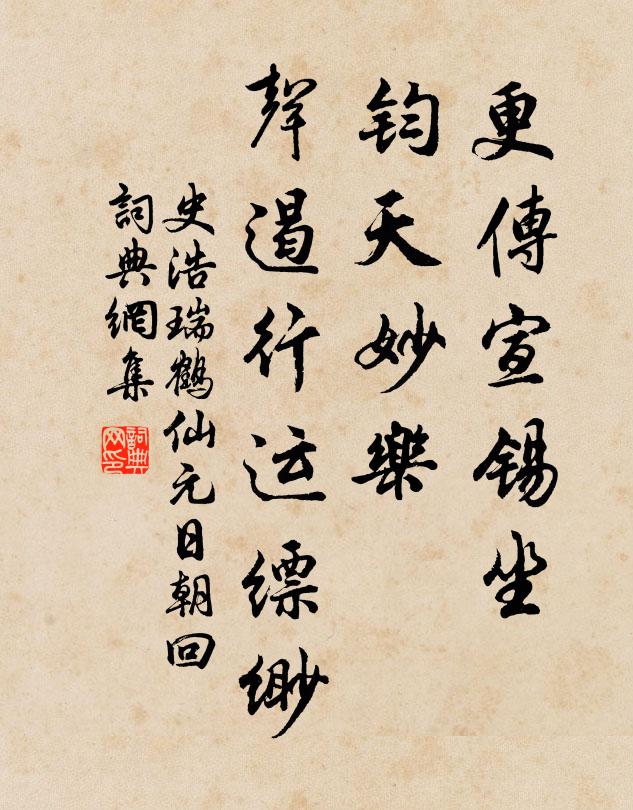 更傳宣錫坐
鈞天妙樂
聲遏行运缥緲
史浩瑞鶴仙元日朝回
詞典網集
詞典网印